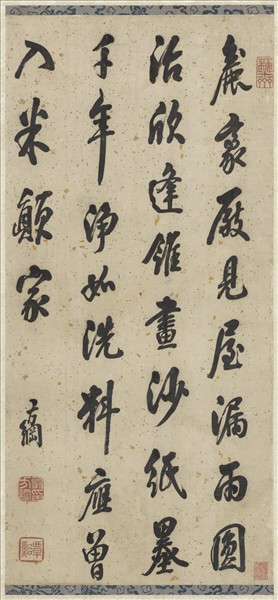 豪屢見屋漏雨圓
活欣逢錐畫沙紙墨
千年淨如洗料應曾
入米顛家
方綱